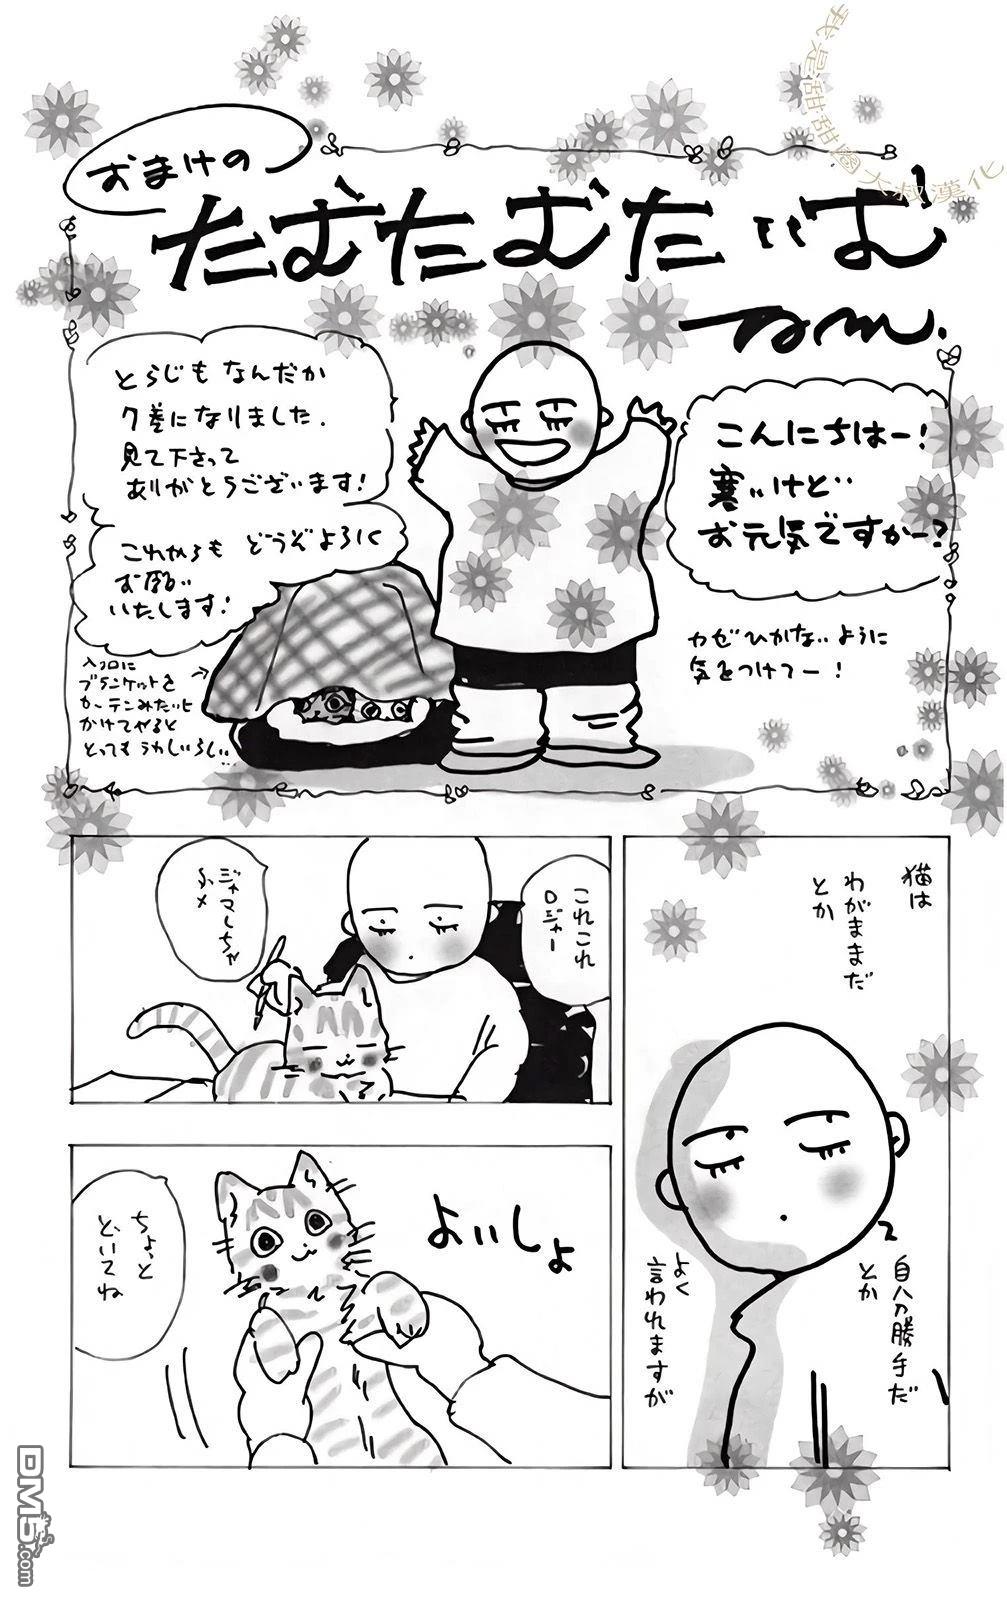 おまけの
たむたむたいむ
こんにちはー!
寒いけど
お元気ですかー?
カゼひかないように
気をつけてー!
とらじもなんだか
7差になりました.
見て下さって
ありがとうございます!
これからもどうぞよろしく
お願い
いたします!
入口に
ブランケットを
カーテンみたいに
かけてやると
とってもうれしいらしい
猫は
わがままだ
とか
自分勝手だ
とか
よく
言われますが
これこれ
ロジャー
ジャマしちゃ
ちょっと
どいてね
よいしょ
我是甜甜圈大叔漢化
DM5.com